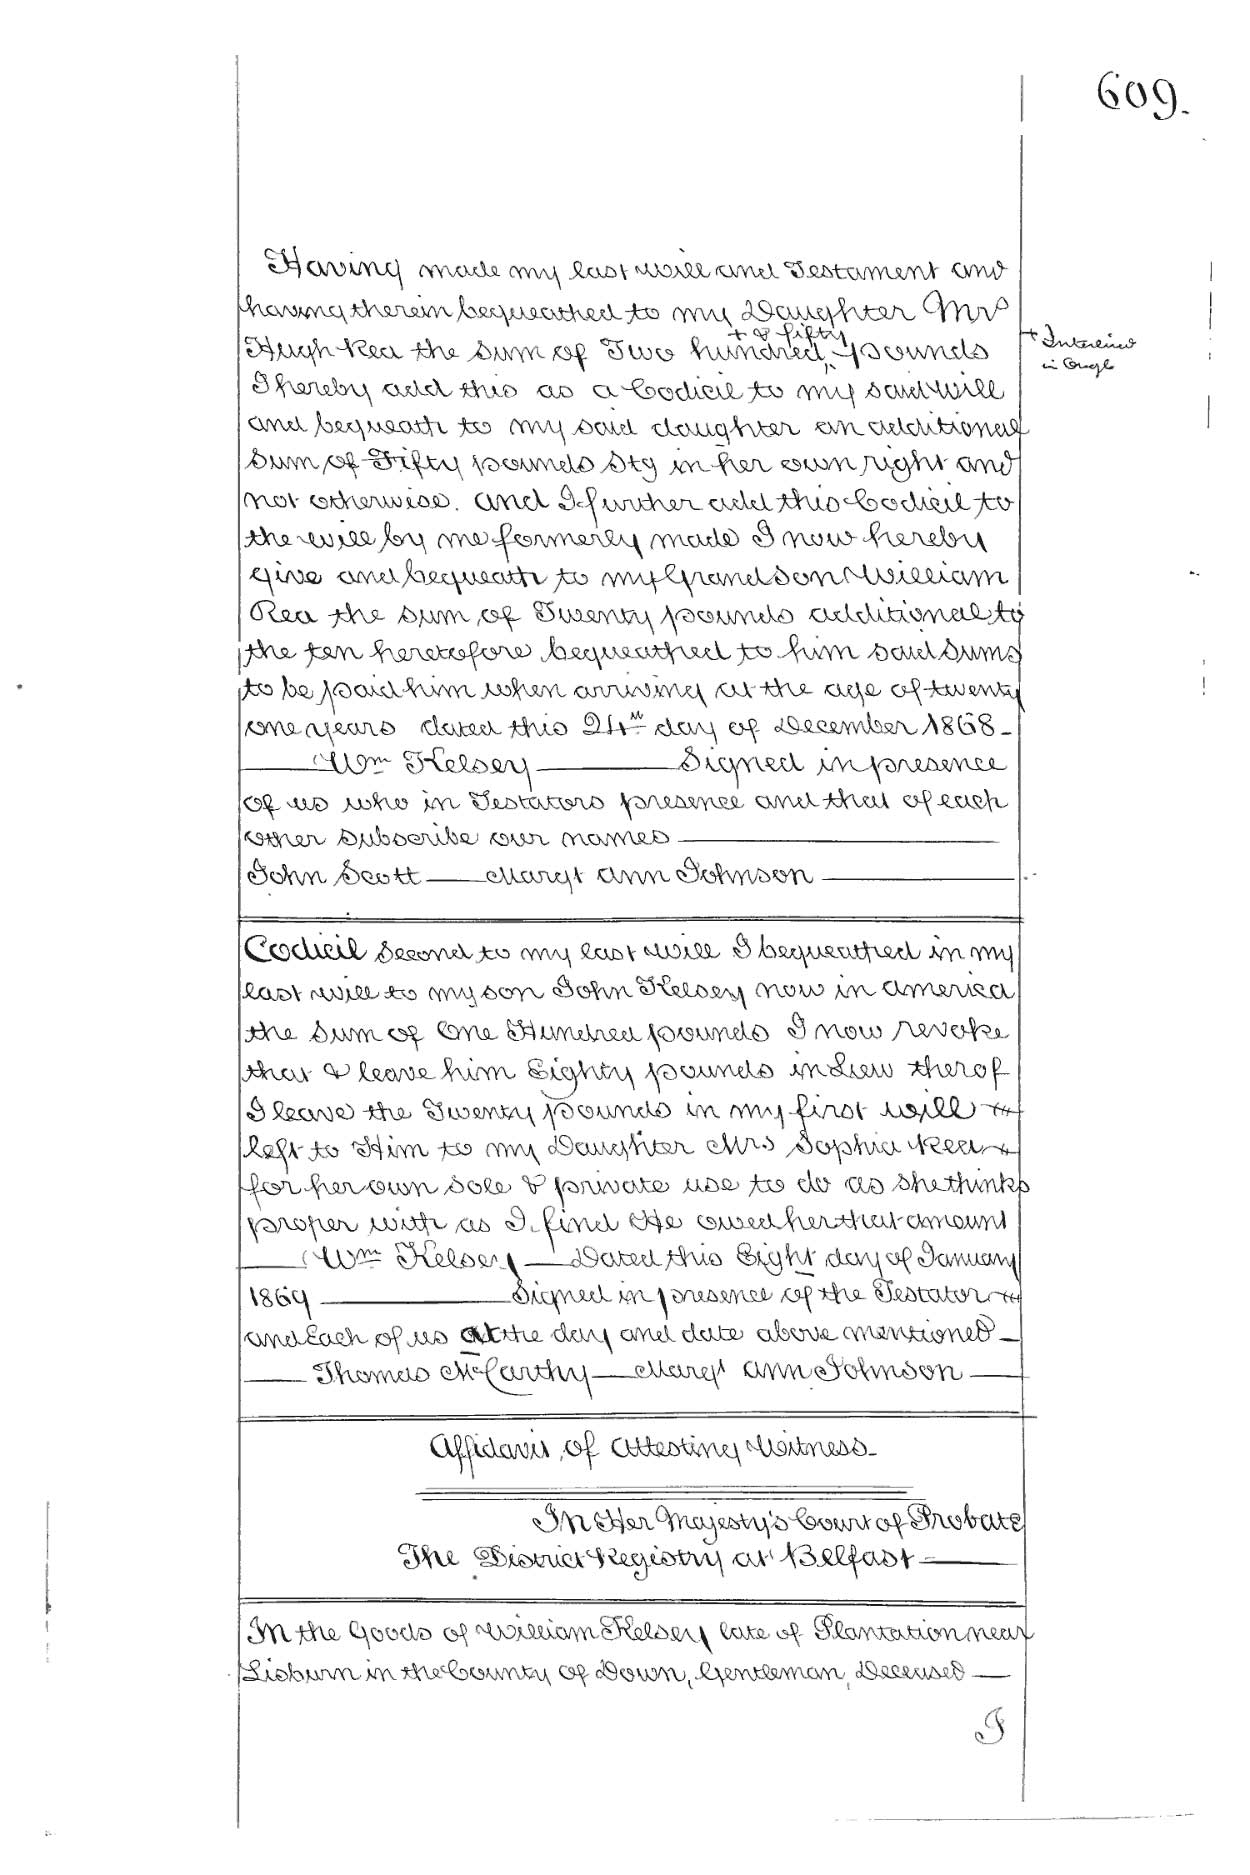 609.
Having made my last will and Testament and
having therein bequeathed to my Daughter Mrs
+ & fifty
Hugh Rea the sum of Two hundred, pounds
+ Interlined
in Origl
I hereby add this as a Codicil to my said will
and bequeath to my said daughter an additional
sum of Fifty pounds Stg in her own right and
not otherwise. and I further add this Codicil to
the will by me formerly made I now hereby
give and bequeath to my Grandson William
Rea the sum of Twenty pounds additional to
the ten heretofore bequeathed to him said sums
to be paid him when arriving at the age of twenty
one years dated this 24th day of December 1868 -
Wm Kelsey Signed in presence
of us who in Testators presence and that of each
other subscribe our names
John Scott Margt Ann Johnson
Codicil Second to my last will I bequeathed in my
last will to my son John Kelsey now in america
the sum of One Hundred pounds I now revoke
that & leave him Eighty pounds in Lieu therof
I leave the Twenty pounds in my first will
left to Him to my Daughter Mrs Sophia Rea
for her own sole & private use to do as she thinks
proper with as I find He owed her that amount
Wm Kelsey Dated this Eight day of January
1869 Signed in presence of the Testator
and Each of us at the day and date above mentioned
Thomas McCarthy Margt Ann Johnson
Affidavit of Attesting Witness
In Her Majesty's Court of Probate
The District Registry at Belfast
In the Goods of William Kelsey late of Plantation near
Lisburn in the County of Down, Gentleman, Deceased
I